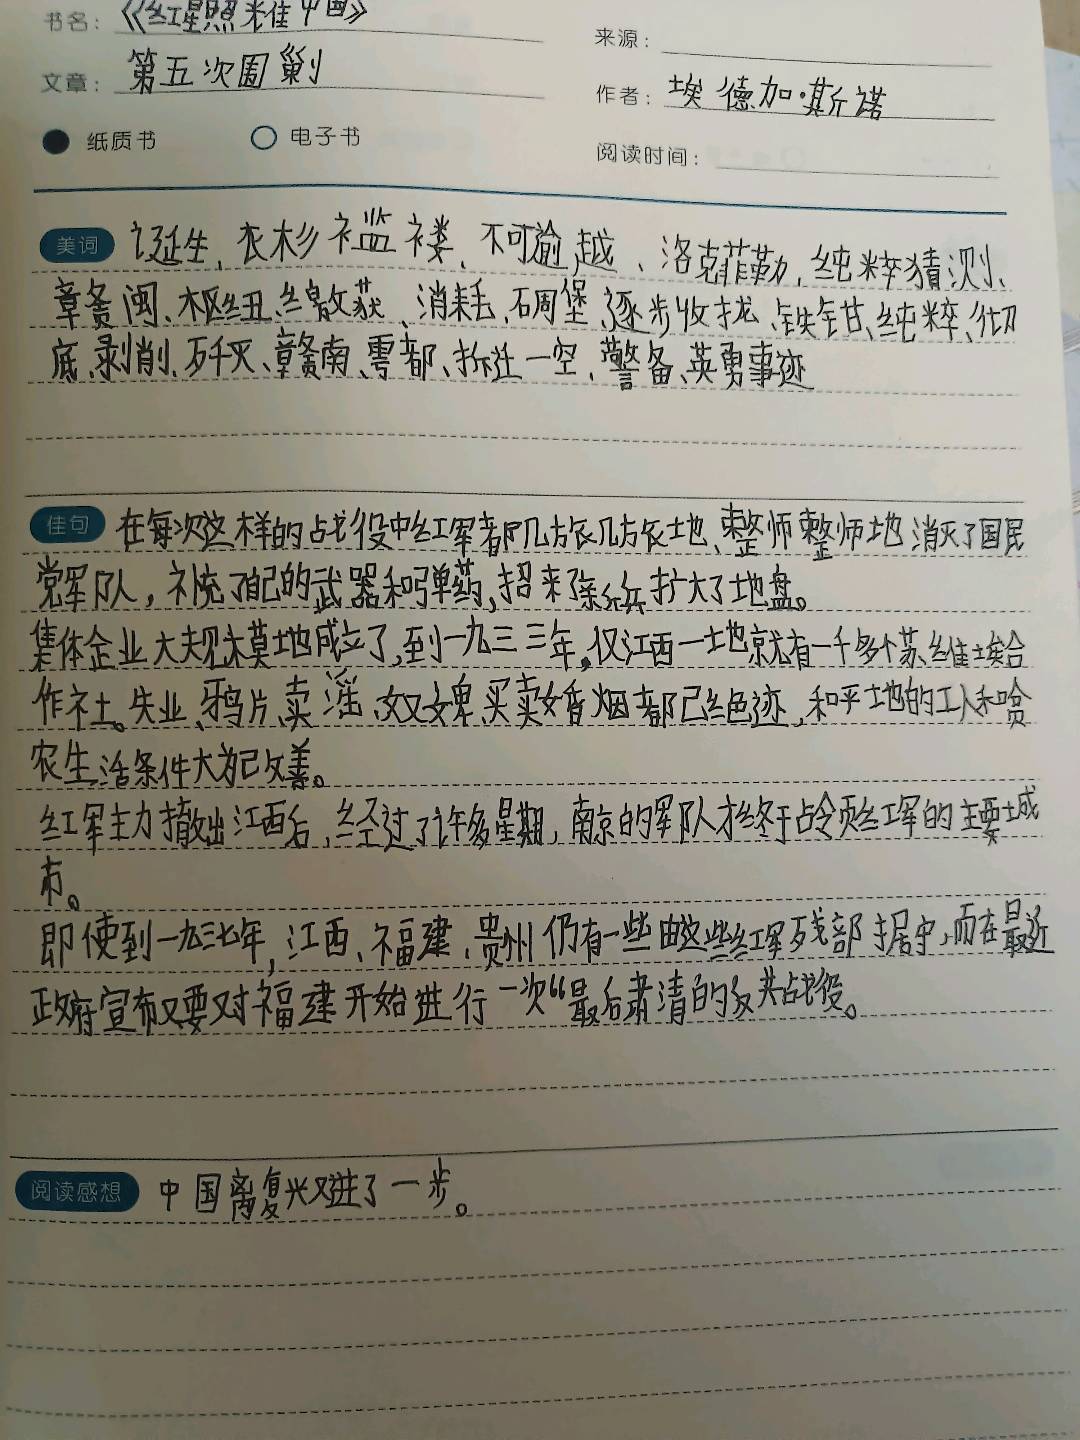 书名：《红星照耀中国》
来源：
文章：第五次围剿
作者：埃德加·斯诺
纸质书 电子书
阅读时间：
美词 诞生、衣衫褴褛、不可逾越、洛克菲勒、纯粹猜测、
赣闽、枢纽、缴获、消耗、碉堡、逐步收拢、铁钳、纯粹、彻
底、剥削、歼灭、赣南、雩都、拆迁一空、警备、英勇事迹
佳句 在每次这样的战役中红军都几旅几旅地、整师整师地消灭了国民
党军队，补充了自己的武器和弹药，招来了新兵扩大了地盘。
集体企业大规模地成立了，到一九三三年，仅江西一地就有一千多个苏维埃合
作社。失业、鸦片、卖淫、奴婢、买卖婚姻都已绝迹，和平地的工人和贫
农生活条件大为改善。
红军主力撤出江西后，经过了许多星期，南京的军队才终于占领红军的主要城
市。
即使到一九三七年，江西、福建、贵州仍有一些由这些红军残部据守，而在最近
政府宣布又要对福建开始进行一次“最后肃清的反共战役。
阅读感想 中国离复兴又进了一步。